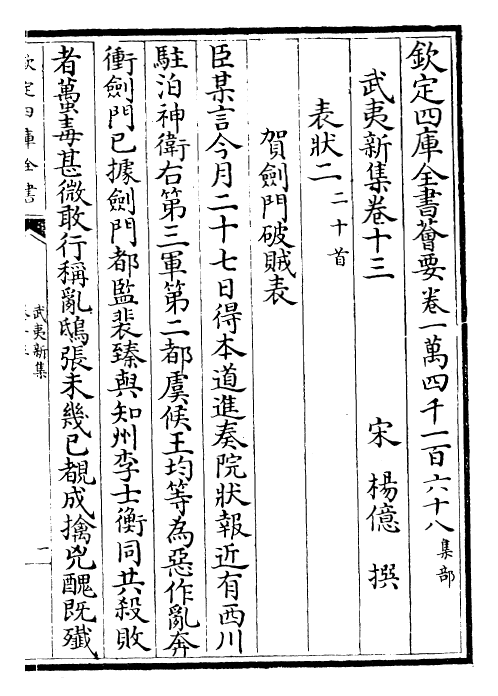 欽定四庫全書薈要卷一萬四千一百六十八集部
武夷新集卷十三
宋楊億撰
表狀二二十首
賀劍門破賊表
臣某言今月二十七日得本道進奏院狀報近有西川
駐泊神衛右第三軍第二都虞候王均等為惡作亂奔
衝劍門已據劍門都監裴臻與知州李士衡同共殺敗
者蠆毒甚微敢行稱亂鴟張未幾已覩成擒兇醜既殲
欽定四庫全書
武夷新集
一